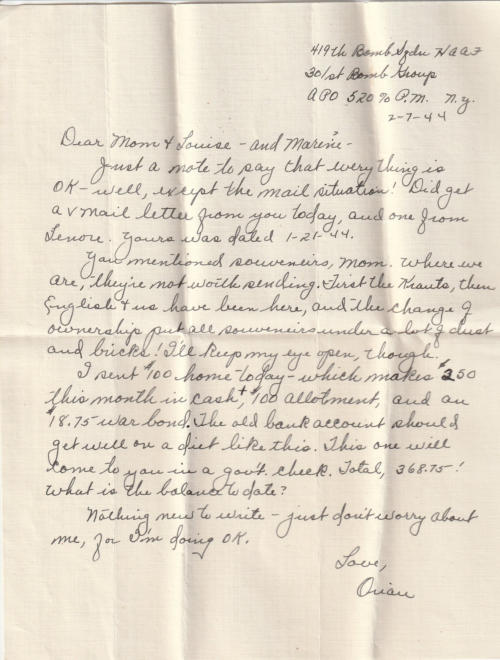 419th Bomb Sqdn HAAF
301st Bomb Group
APO 520 % P.M. N.Y.
2-7-44
Dear Mom & Louise - and Marene -
Just a note to say that everything is
OK - well, except the mail situation! Did get
a v mail letter from you today, and one from
Lenore. Yours was dated 1-21-44.
You mentioned souveneirs, Mom. Where we
are, they're not worth sending. First the Krauts, then
English & us have been here, and the change of
ownership put all souveneirs under a lot of dust
and bricks! I'll keep my eye open, though.
I sent $100 home today - which makes $250
this month in cash, + $100 allotment, and an
$18.75 war bond. The old bank account should
get well on a diet like this. This one will
come to you in a gov't. check. Total, 368.75 -!
What is the balance to date?
Nothing new to write - just don't worry about
me, for I'm doing OK.
Love,